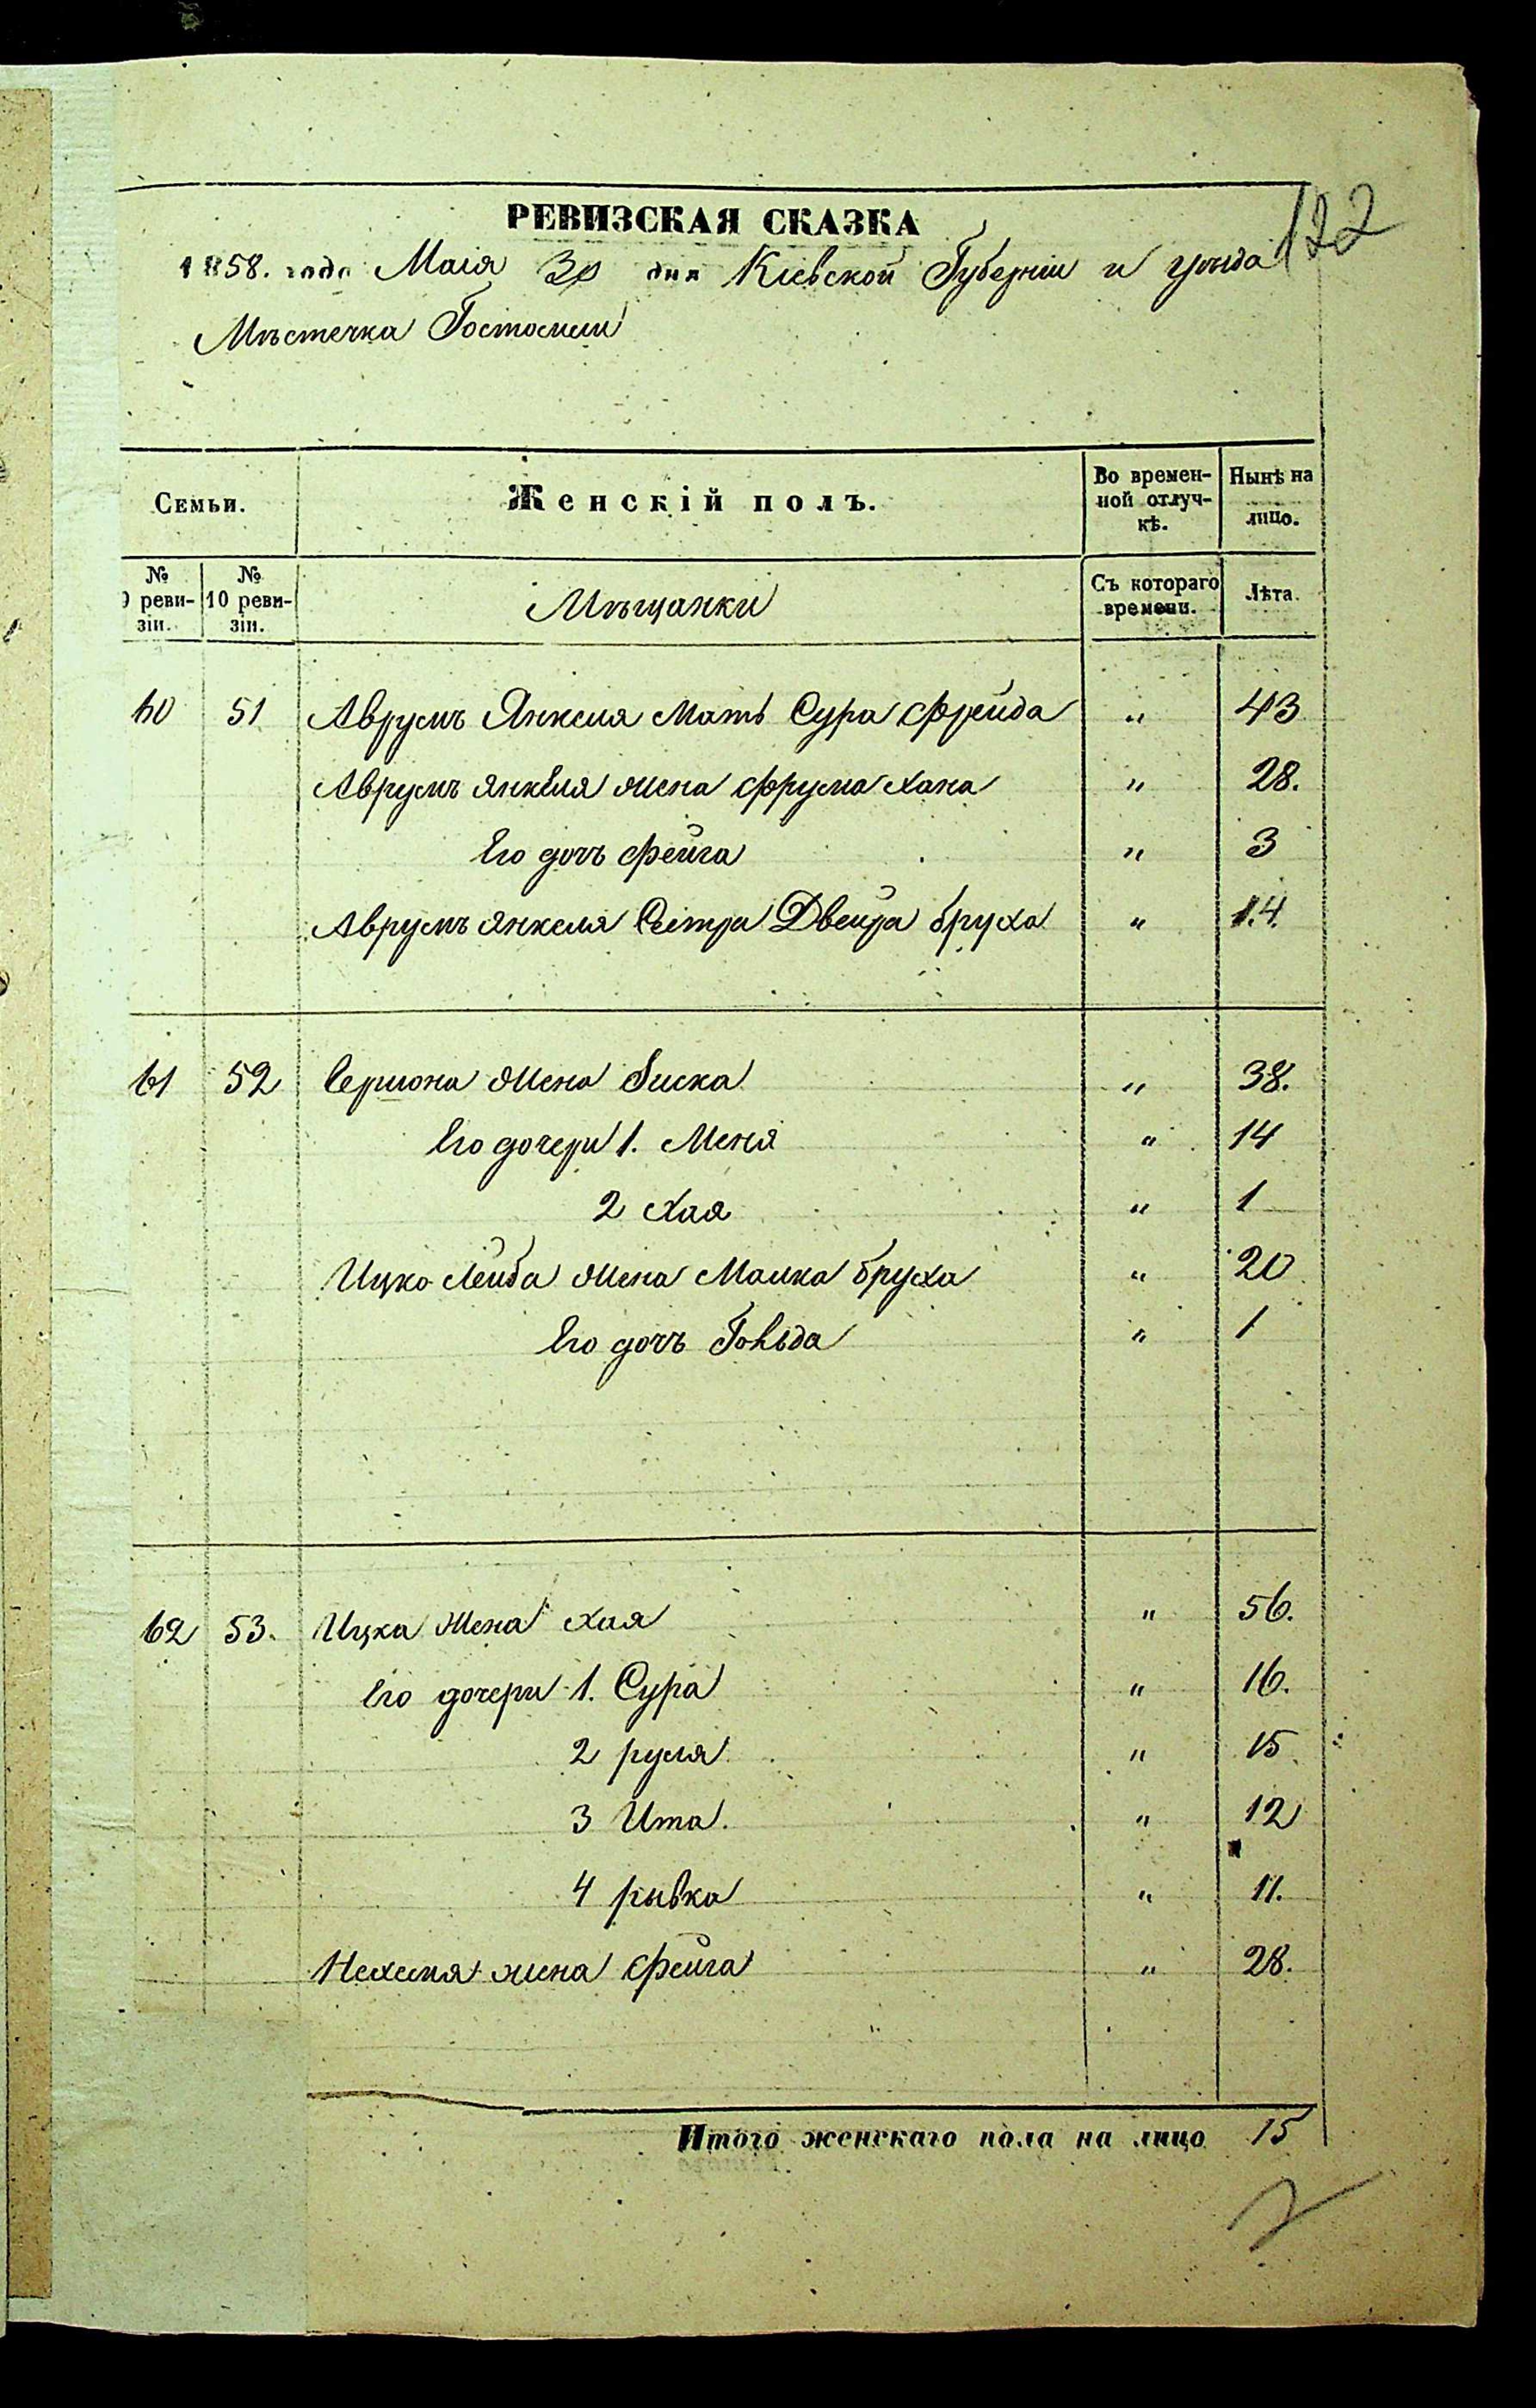 122
РЕВИЗСКАЯ СКАЗКА
1858. года Маія 30 дня Кіевской Губерніи и уѣзда
Мѣстечка Гостомели
Семьи. Женскій полъ. Во времен-ной отлуч-кѣ. Нынѣ на лицо.
№ 9 реви-зіи. № 10 реви-зіи. Мѣщанки Съ котораго времени. Лѣта.
60 51 Аврумъ Янкеля Мать Сура Фрейда " 43
Аврумъ Янкеля жена Фрума Хана " 28.
Его дочь Фейга " 3
Аврумъ Янкеля Сестра Двейра бруха " 14.
61 52 жена " 38.
Его дочери 1. Меня " 14
2 Хая " 1
Ицко Лейба жена Малка бруха " 20
Его дочь Гольда " 1
62 53. Ицка жена Хая " 56.
Его дочери 1. Сура " 16.
2 руля " 15
3 Ита. " 12
4 рывка " 11.
Нехемя жена Фейга " 28.
Итого женскаго пола на лицо 15